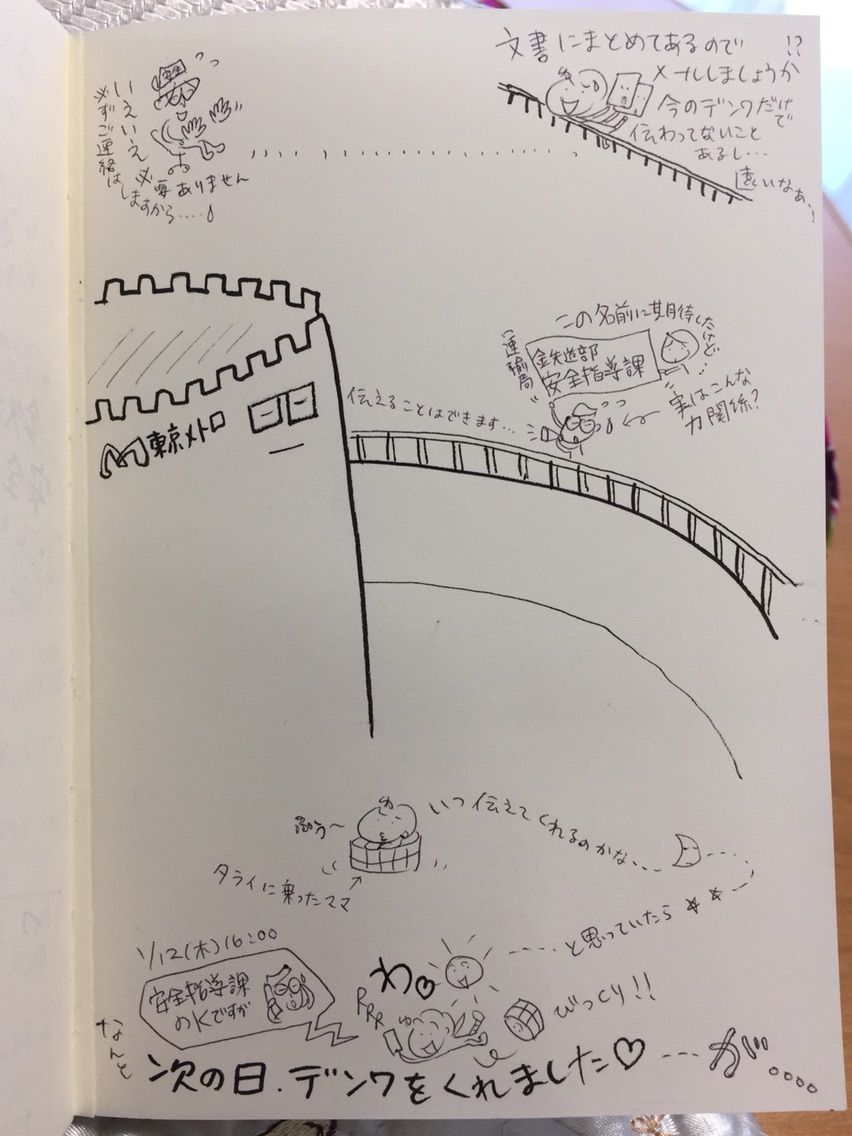 文書にまとめてあるので
メールしましょうか
!?
今のデンワだけで
伝わってないこと
あるし…
遠いなぁ、、
いえいえ必要ありません
必ずご連絡は
しますから……
安全
この名前に期待したけど…
実はこんな
力関係?
運輸局
鉄道部
安全指導課
伝えることはできます…
東京メトロ
いつ伝えてくれるのかな…
ふぅ〜
タライに乗ったママ
と思っていたら
1/12(木)16:00
安全指導課
のKですが
わ♡
びっくり!!
RRR
なんと
次の日、デンワをくれました♡---が….